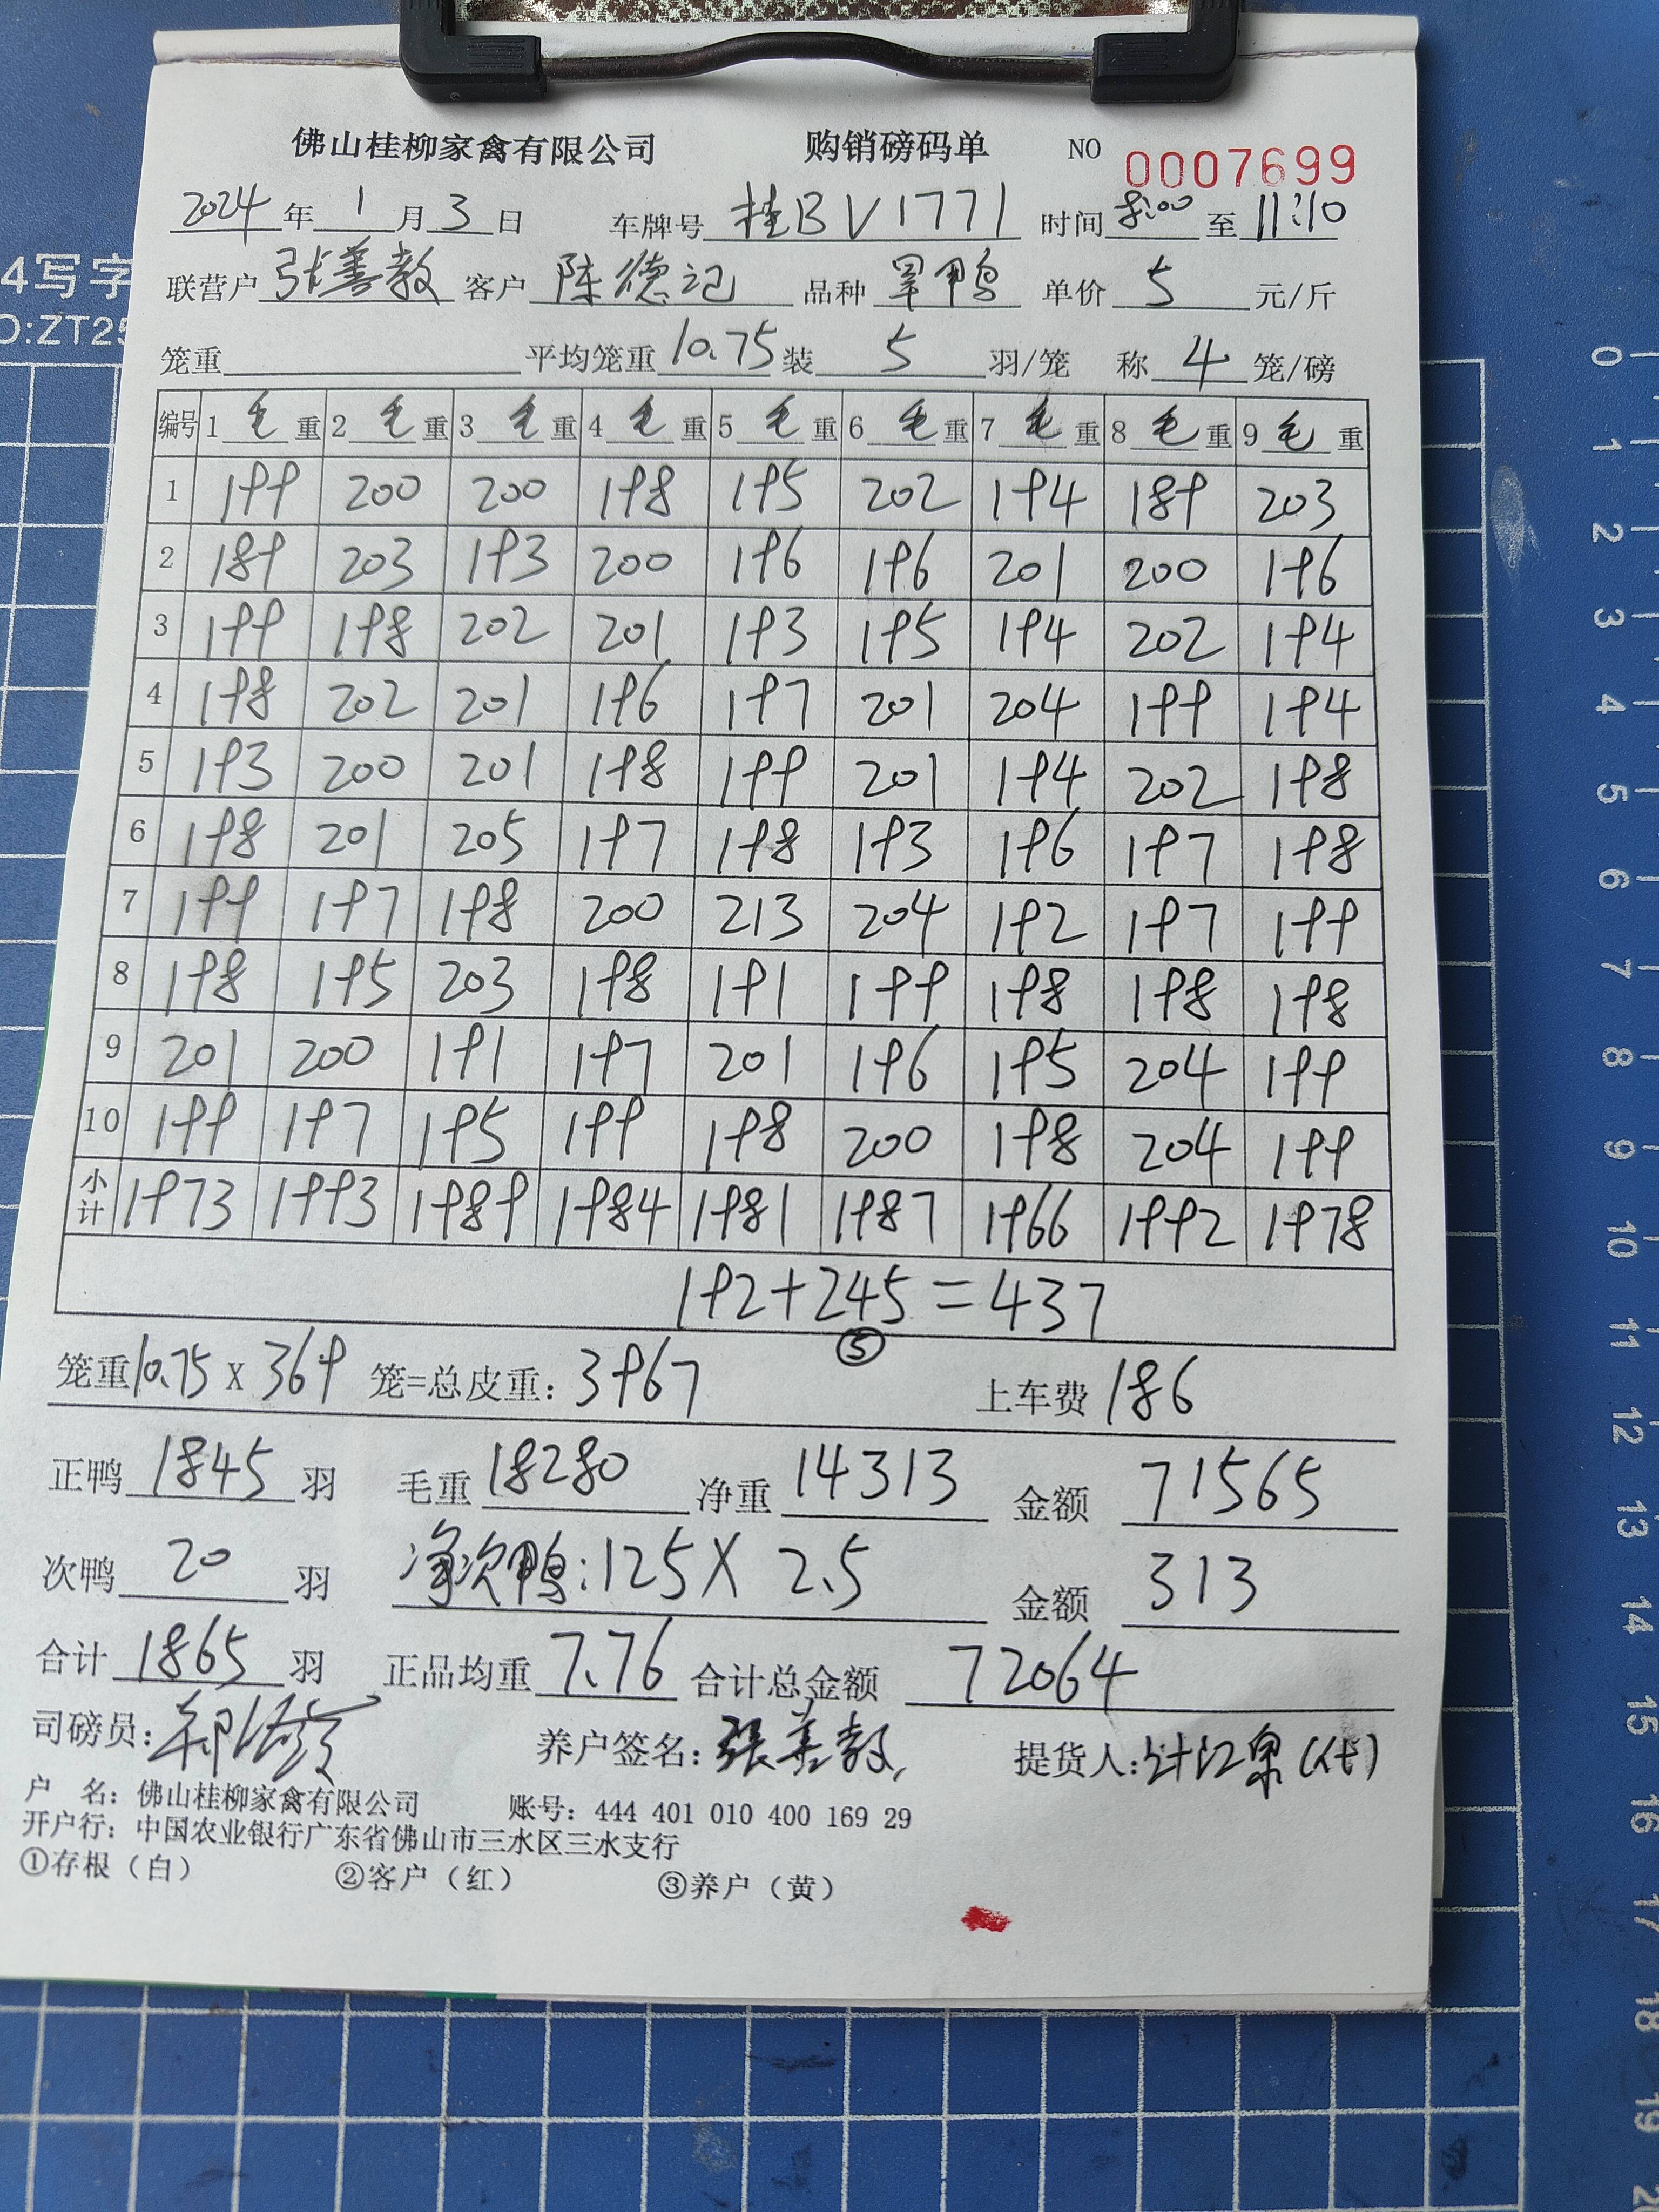 佛山桂柳家禽有限公司 购销磅码单 NO 0007699
2024年1月3日 车牌号 桂BV1771 时间8:00至11:10
联营户 张善教 客户 陈德记 品种 旱鸭 单价 5 元/斤
笼重 平均笼重 10.75 装 5 羽/笼 称 4 笼/磅
编号 1 毛 重 2 毛 重 3 毛 重 4 毛 重 5 毛 重 6 毛 重 7 毛 重 8 毛 重 9 毛 重
1 199 200 200 198 195 202 194 189 203
2 189 203 193 200 196 196 201 200 196
3 199 198 202 201 193 195 194 202 194
4 198 202 201 196 197 201 204 199 194
5 193 200 201 198 199 201 194 202 198
6 198 201 205 197 198 193 196 197 198
7 199 197 198 200 213 204 192 197 199
8 198 195 203 198 191 199 198 198 198
9 201 200 191 197 201 196 195 204 199
10 199 197 195 199 198 200 198 204 199
小计 1973 1993 1989 1984 1981 1987 1966 1992 1978
192+245=437
⑤
笼重10.75 X 369 笼=总皮重: 3967 上车费 186
正鸭 1845 羽 毛重 18280 净重 14313 金额 71565
次鸭 20 羽 净次鸭:125X 2.5 金额 313
合计 1865 羽 正品均重 7.76 合计总金额 72064
司磅员: 养户签名: 张善教 提货人: (代)
户 名: 佛山桂柳家禽有限公司 账号: 444 401 010 400 169 29
开户行: 中国农业银行广东省佛山市三水区三水支行
①存根（白） ②客户（红） ③养户（黄）
4写字
O:ZT25
0
1
2
3
4
5
6
7
8
9
10
11
12
13
14
15
16
17
18
19